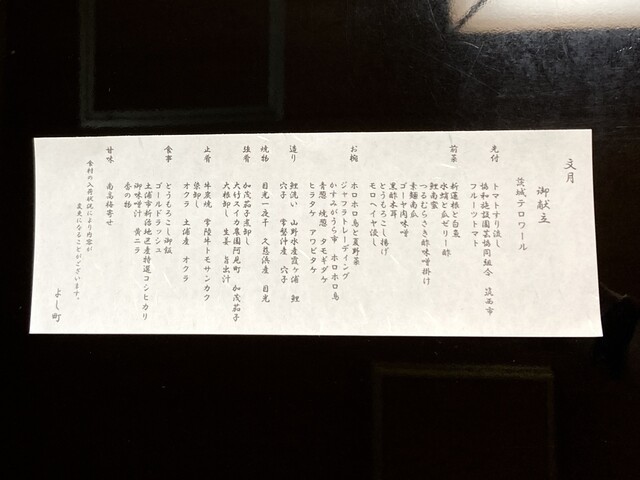 文月
御献立
茨城テロワール
先付
トマトすり流し
協和施設園芸協同組合 筑西市
フルーツトマト
前菜
新蓮根と白魚
水蛸と瓜ゼリー酢
鯉南蛮
つるむらさき酢味噌掛け
素麺南瓜
ゴーヤ肉味噌
黒酢木耳
とうもろこし揚げ
モロヘイヤ浸し
お椀
ホロホロ鳥と夏野菜
ジャフラトレーディング
かすみがうら市 ホロホロ鳥
青葱 焼葱 タモギダケ
ヒラタケ アワビタケ
造り
鯉洗い 山野水産霞ヶ浦 鯉
穴子 常磐沖産 穴子
焼物
目光一夜干 久慈浜産 目光
強肴
加茂茄子煮卸し
大竹スイカ農園阿見町 加茂茄子
大根卸し 生姜 旨出汁
止肴
牛炭焼 常陸牛トモサンカク
染卸し
オクラ 土浦産 オクラ
食事
とうもろこし御飯
ゴールドラッシュ
土浦市新治地区産特選コシヒカリ
御味噌汁 黄ニラ
香の物
甘味
南高梅寄せ
食材の入荷状況により内容が
変更になることがございます。
よし町